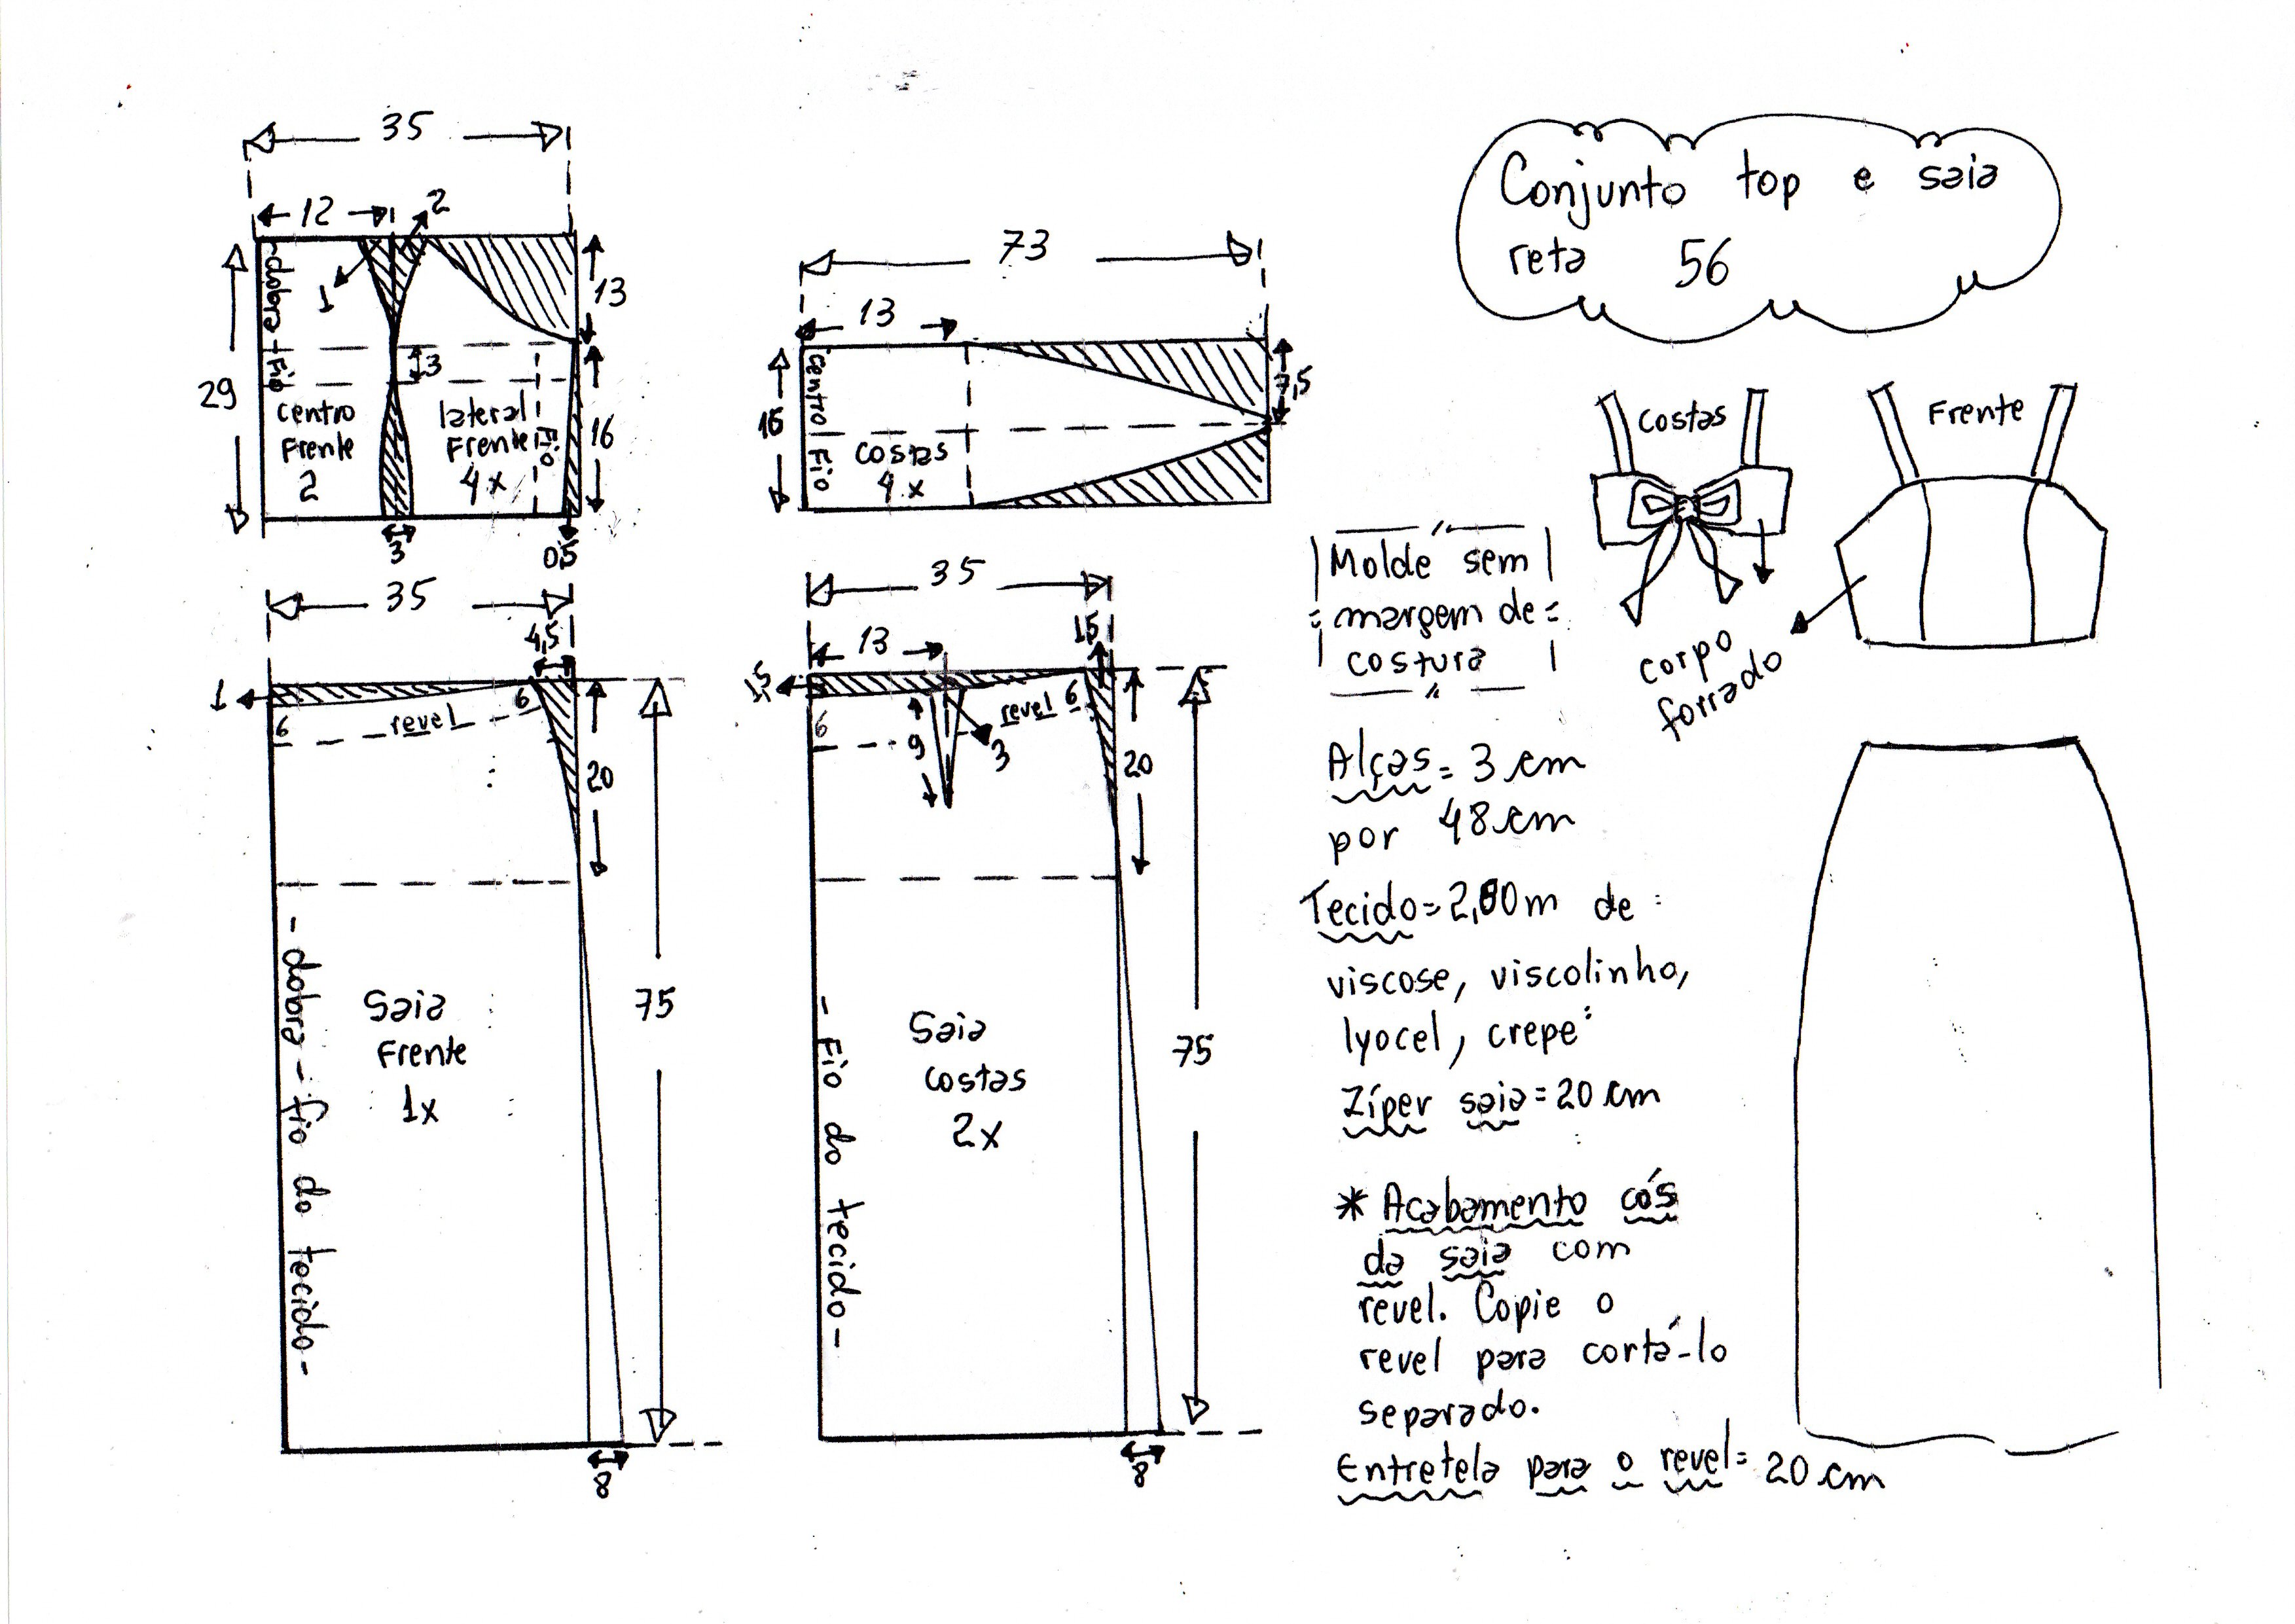 Conjunto top e saia
reta 56
35
12
2
1
dobra - fio
13
3
29
centro
Frente
2
lateral
Frente
4x
Fio
16
3
0,5
73
13
7,5
centro Fio
costas
4x
Costas
Frente
corpo
forrado
Molde sem
margem de
costura
35
4,5
1
6
revel
6
20
75
Saia
Frente
1x
- dobra - fio do tecido -
8
35
13
1,5
1,5
6
9
3
revel 6
20
75
Saia
costas
2x
- Fio do tecido -
8
Alças = 3 cm
por 48 cm
Tecido = 2,80m de
viscose, viscolinho,
lyocel, crepe
Zíper saia = 20 cm
* Acabamento cós
da saia com
revel. Copie o
revel para cortá-lo
separado.
Entretela para o revel = 20 cm